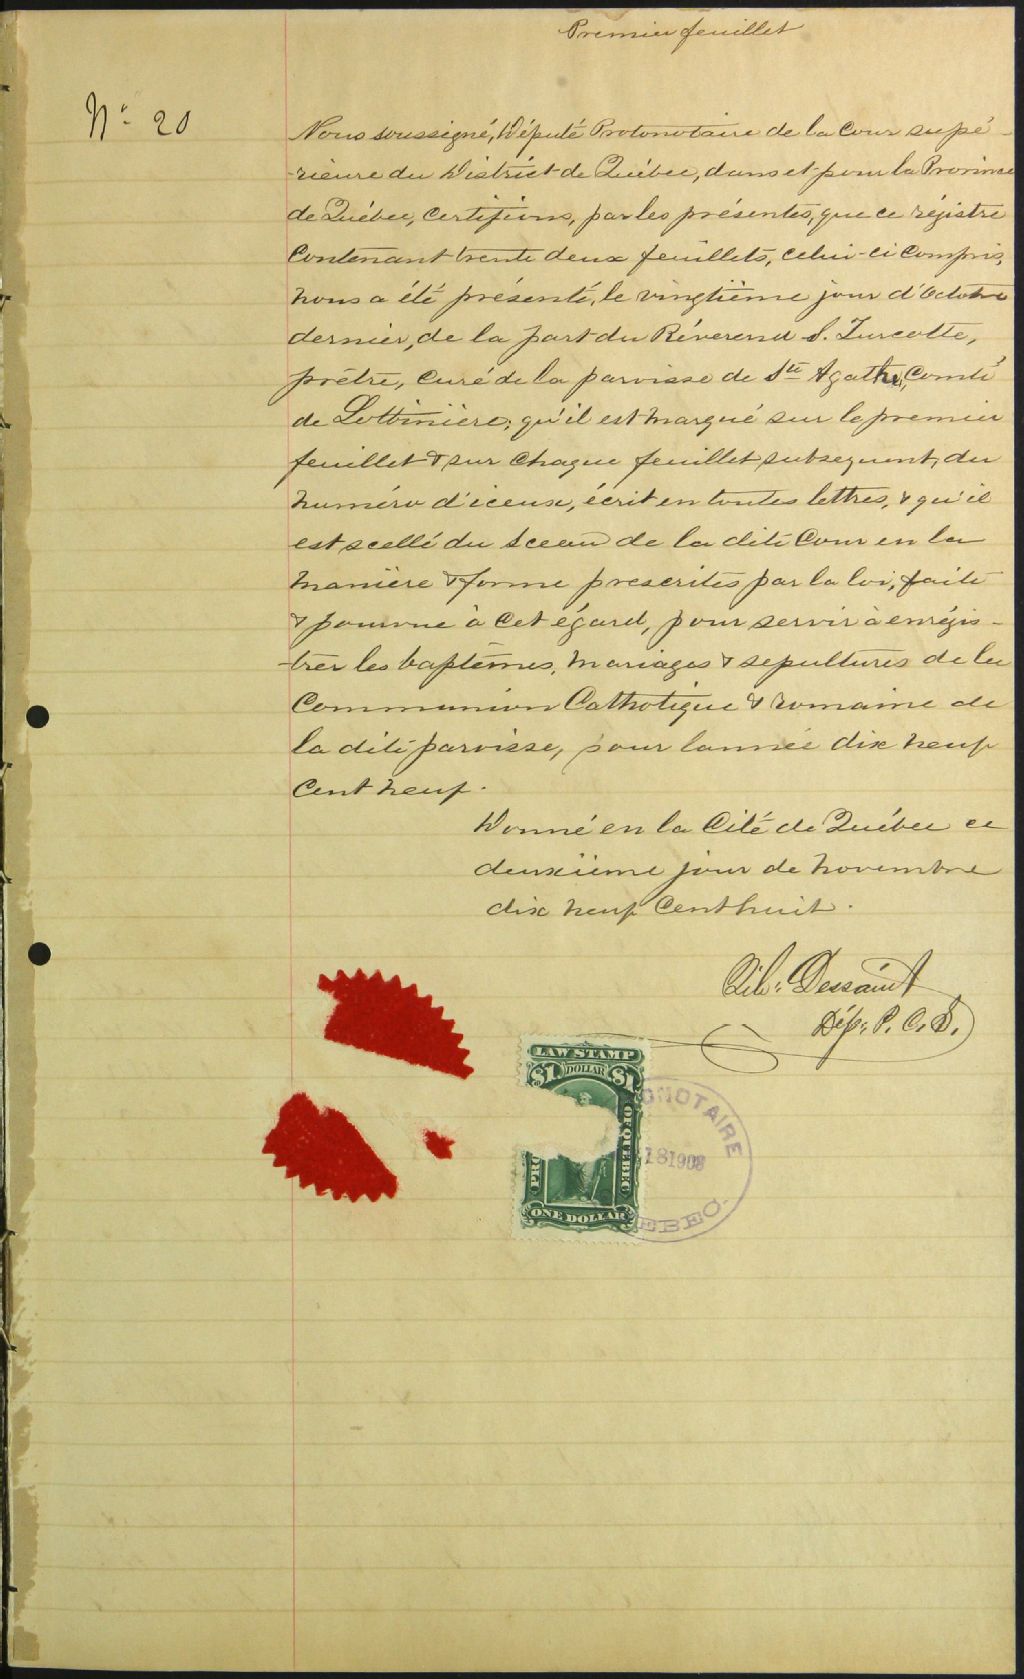 Premier feuillet
No 20
Nous soussigné, Député Protonotaire de la Cour supé-
-rieure du District de Québec, dans et pour la Province
de Québec, certifions, par les présentes, que ce régistre
contenant trente deux feuillets, celui-ci compris,
nous a été présenté, le vingtième jour d'Octobre
dernier, de la part du Révérend S. Turcotte,
prêtre, curé de la paroisse de Ste Agathe, Comté
de Lotbinière; qu'il est marqué sur le premier
feuillet & sur chaque feuillet subsequent, du
numéro d'iceux, écrit en toutes lettres, & qu'il
est scellé du sceau de la dite Cour en la
manière & forme prescrites par la loi, faite
& pourvue à cet égard, pour servir à enrégis-
-trer les baptêmes, mariages & sepultures de la
Communion Catholique & romaine de
la dite paroisse, pour lannée dix neuf
cent neuf.
Donné en la Cité de Québec ce
deuxième jour de novembre
dix neuf cent huit.
Dessaint
Dép. P. C. S.
LAW STAMP
$1. DOLLAR $1
PRO
OF QUEBEC
ONE DOLLAR
ONOTAIRE
1908
EBEC.